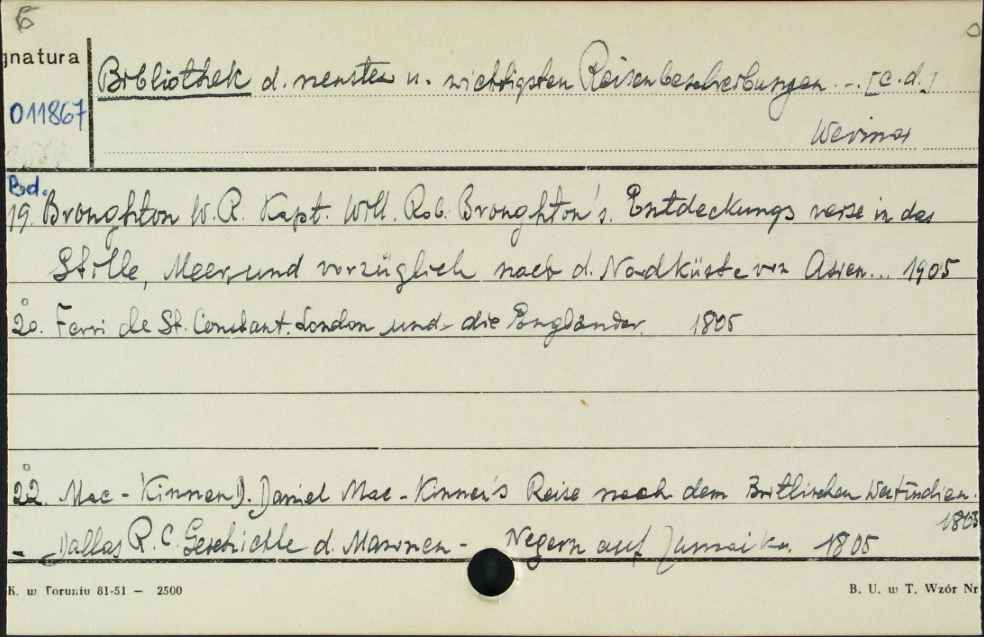 6
gnatura
Bibliothek d. neusten u. wichtigsten Reisenbeschreibungen... [c.d.]
011867
Weimar
Bd.
19. Broughton W. R. Kapt. Will. Rob. Broughton's. Entdeckungs reise in das
Stille, Meer und vorzüglich nach d. Nordküste von Asien... 1905
20. Ferri de St. Constant. London und die Engländer. 1805
22. Mac-Kinnen D. Daniel Mac-Kinnen's Reise nach dem Britlischen Westindien.
1805
- Dallas R. C. Geschichte d. Maronen- Negern auf Jamaika. 1805
K. w Toruniu 81-51 — 2500
B. U. w T. Wzór Nr